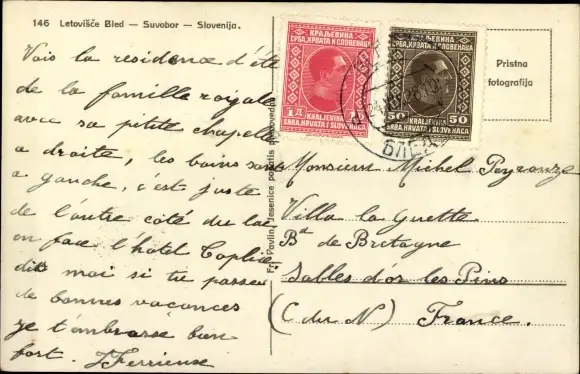 146 Letovišče Bled — Suvobor — Slovenija.
Vois la residence d'été
de la famille royale
avec sa petite chapelle
a droite, les bains sont
a gauche, c'est juste
de l'autre coté du lac
en face l'hotel Toplice
dis moi si tu passes
de bonnes vacances
je t'embrasse bien
fort.
Fr. Pavlin, Jesenice
КРАЉЕВИНА
СРБА, ХРВАТА И СЛОВЕНАЦА
1 Д
KRALJEVINA
SRBA, HRVATA I SLOVENACA
КРАЉЕВИНА
СРБА, ХРВАТА И СЛОВЕНАЦА
50 50
KRALJEVINA
SRBA, HRVATA I SLOVENACA
БЛЕД
Pristna
fotografija
Monsieur Michel Peyronze
Villa la Guette
Bd de Bretagne
Sables d'or les Pins
(C. du N) France.